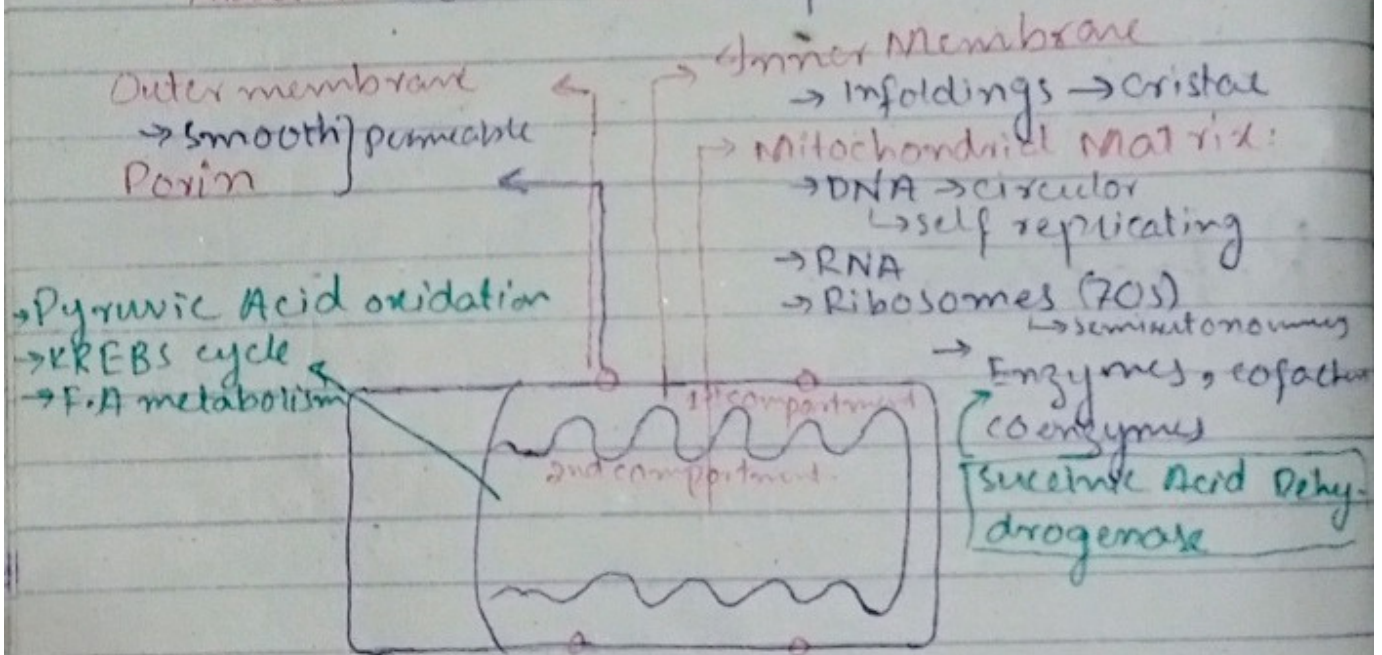 Outer membrane
→ smooth } permeable
Porin
Inner Membrane
→ Infoldings → Cristae
→ Mitochondrial Matrix:
→ DNA → circulor
↳ self replicating
→ RNA
→ Ribosomes (70s)
↳ semiautonomous
→ Enzymes, cofactors
coenzymes
Succinic Acid Dehy-
drogenase
→ Pyruvic Acid oxidation
→ KREBS cycle
→ F.A metabolism
1st compartment
2nd compartment